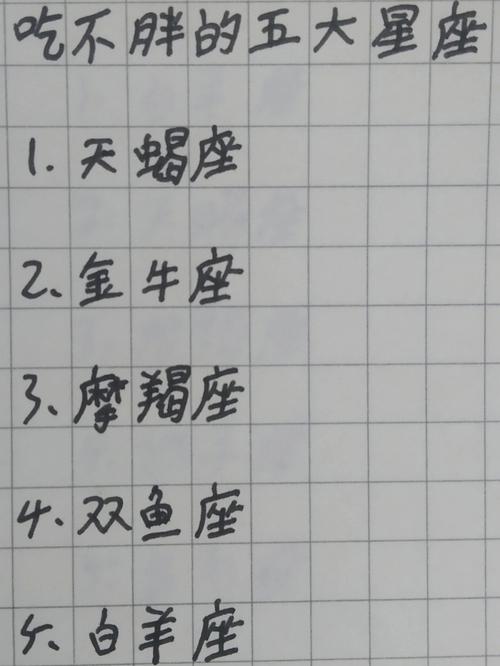 吃不胖的五大星座
1.天蝎座
2、金牛座
3、摩羯座
4.双鱼座
5、白羊座